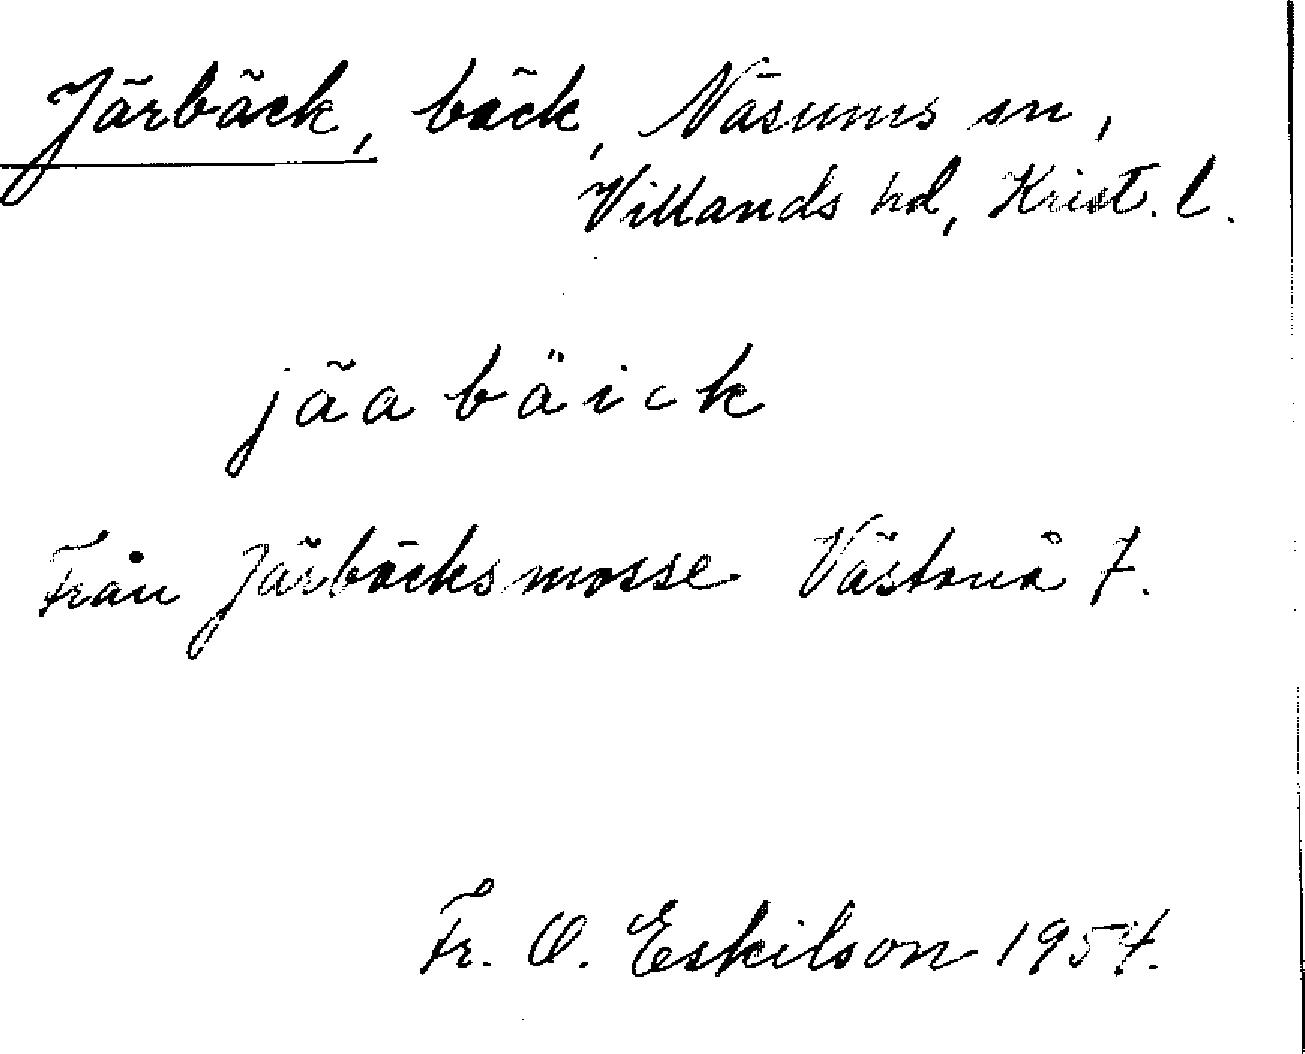 Järbäck, bäck, Näsums sn,
Villands hd, Krist. l.
jäa bäick
Från Järbäcksmosse Västanå 7.
Fr. O. Eskilson 1954.